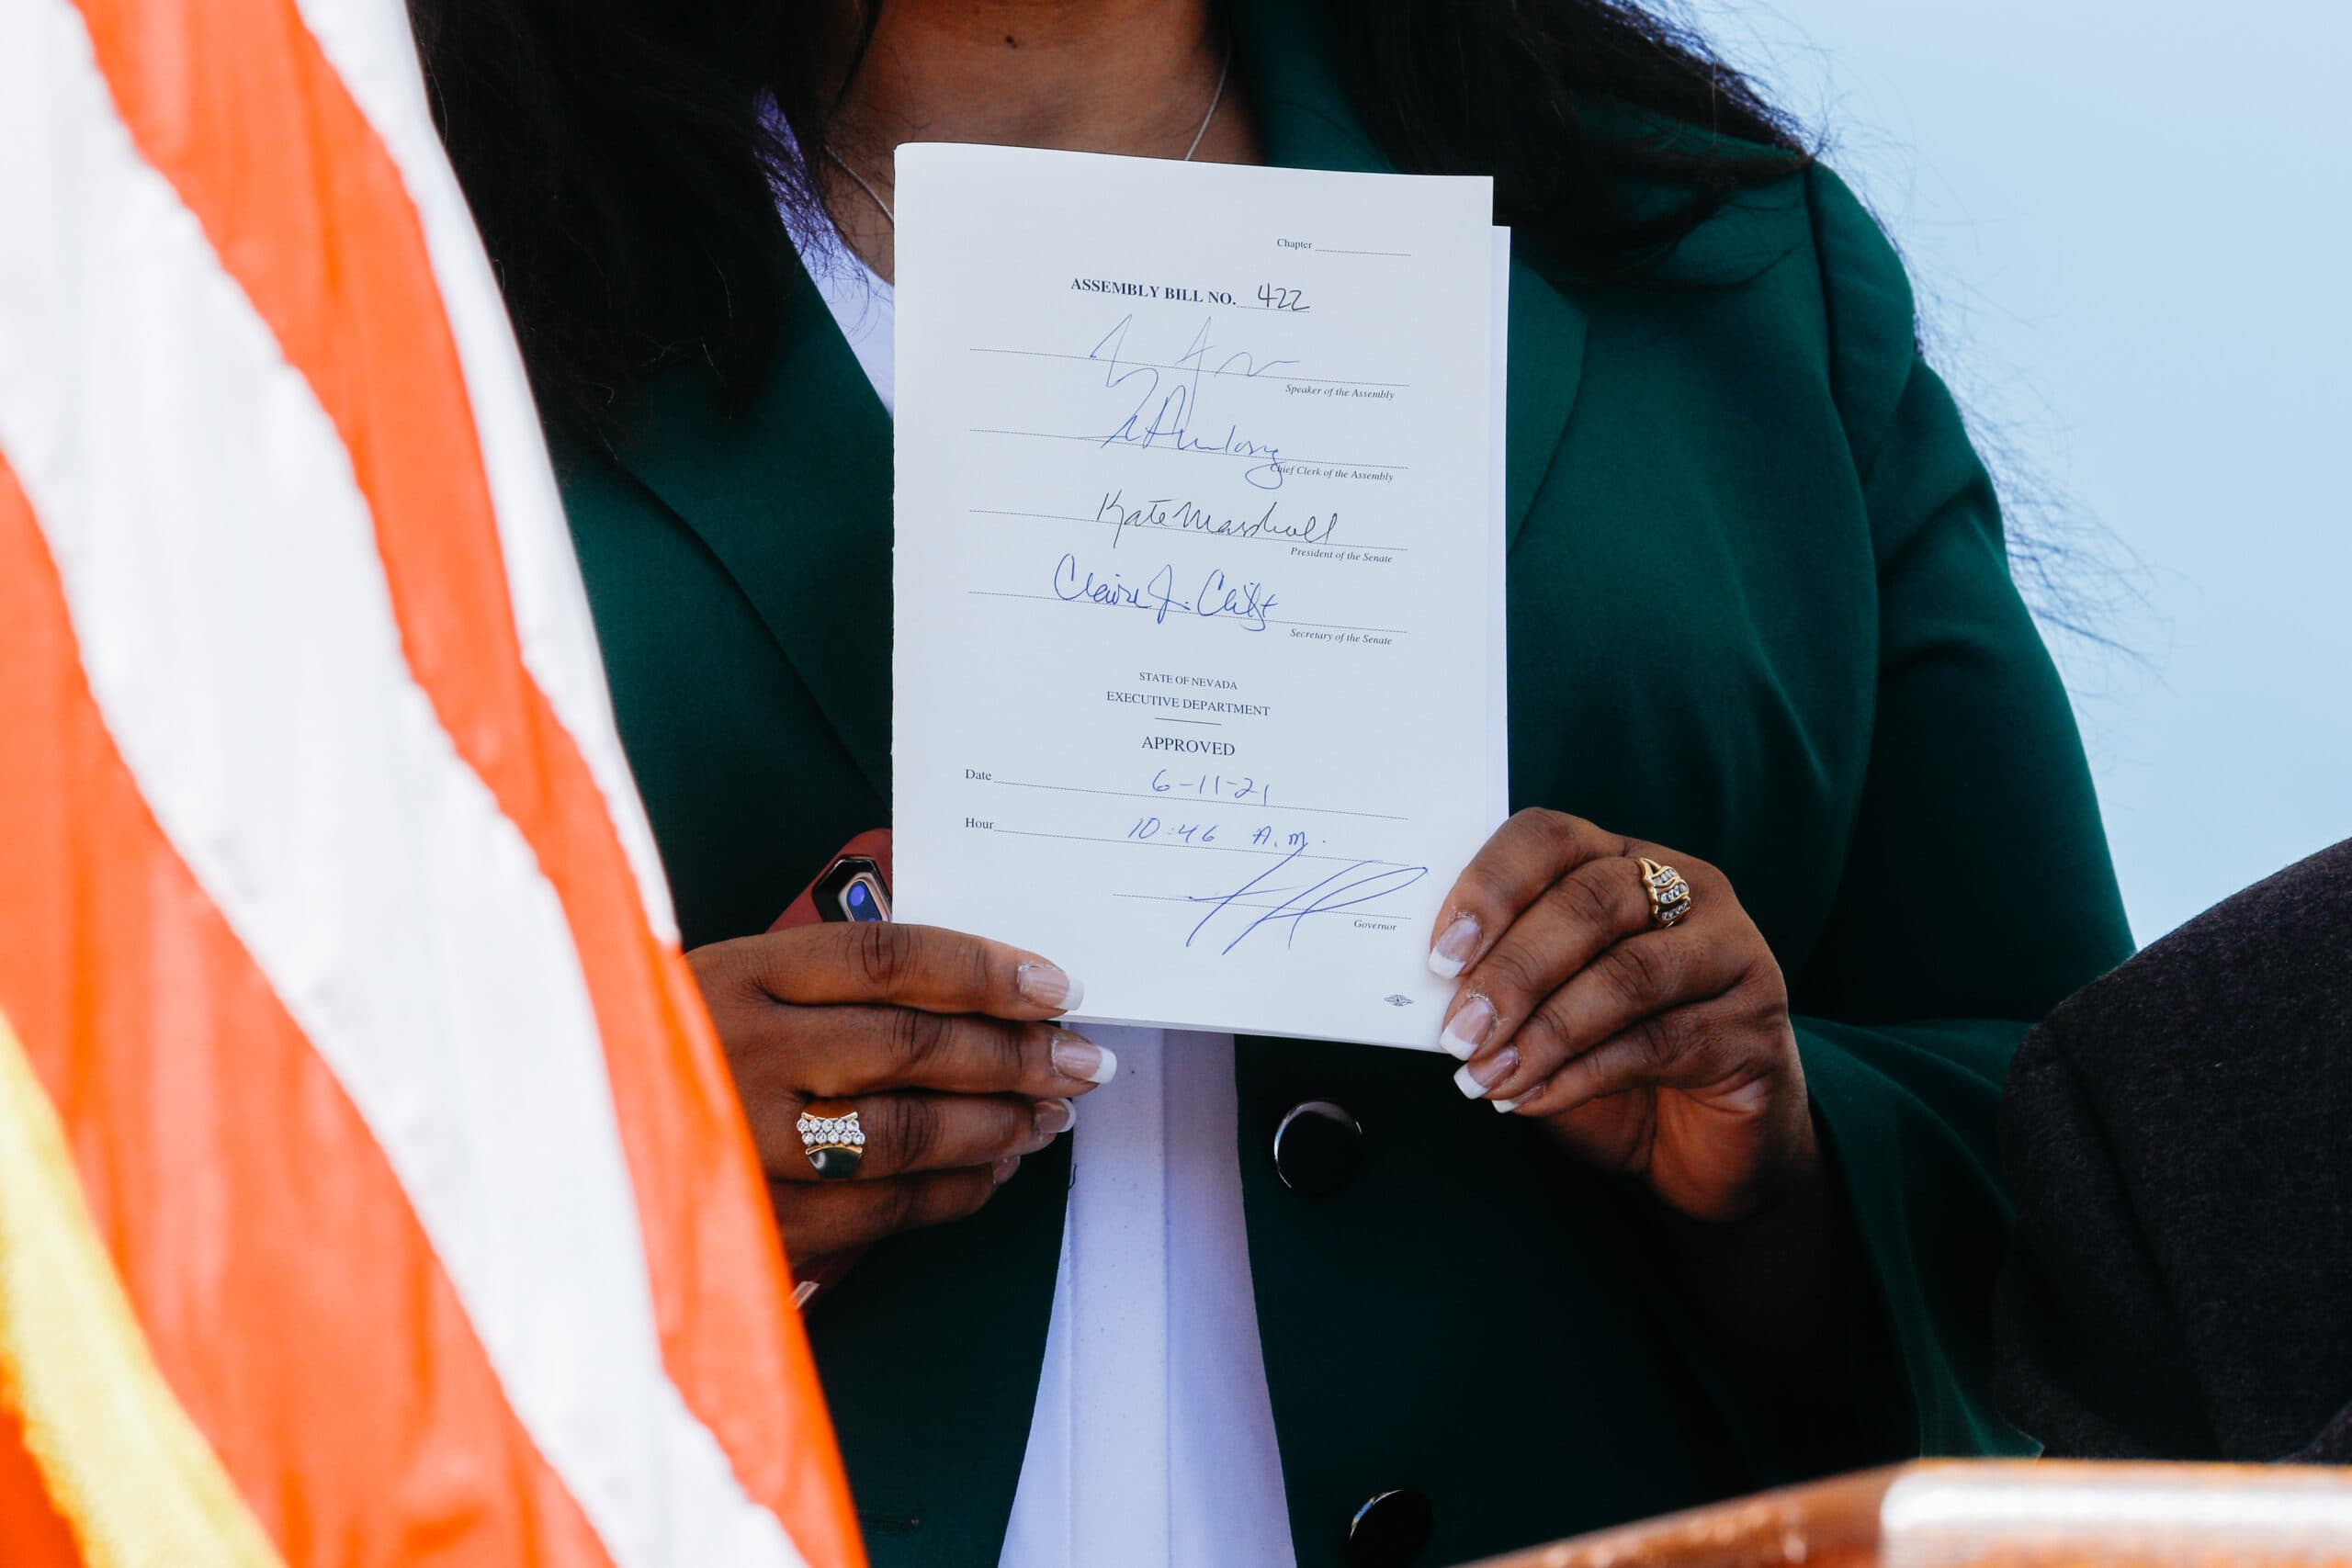 Chapter
ASSEMBLY BILL NO. 422
Speaker of the Assembly
Chief Clerk of the Assembly
Kate Marshall
President of the Senate
Claire J. Clift
Secretary of the Senate
STATE OF NEVADA
EXECUTIVE DEPARTMENT
APPROVED
Date 6-11-21
Hour 10:46 A.M.
Governor